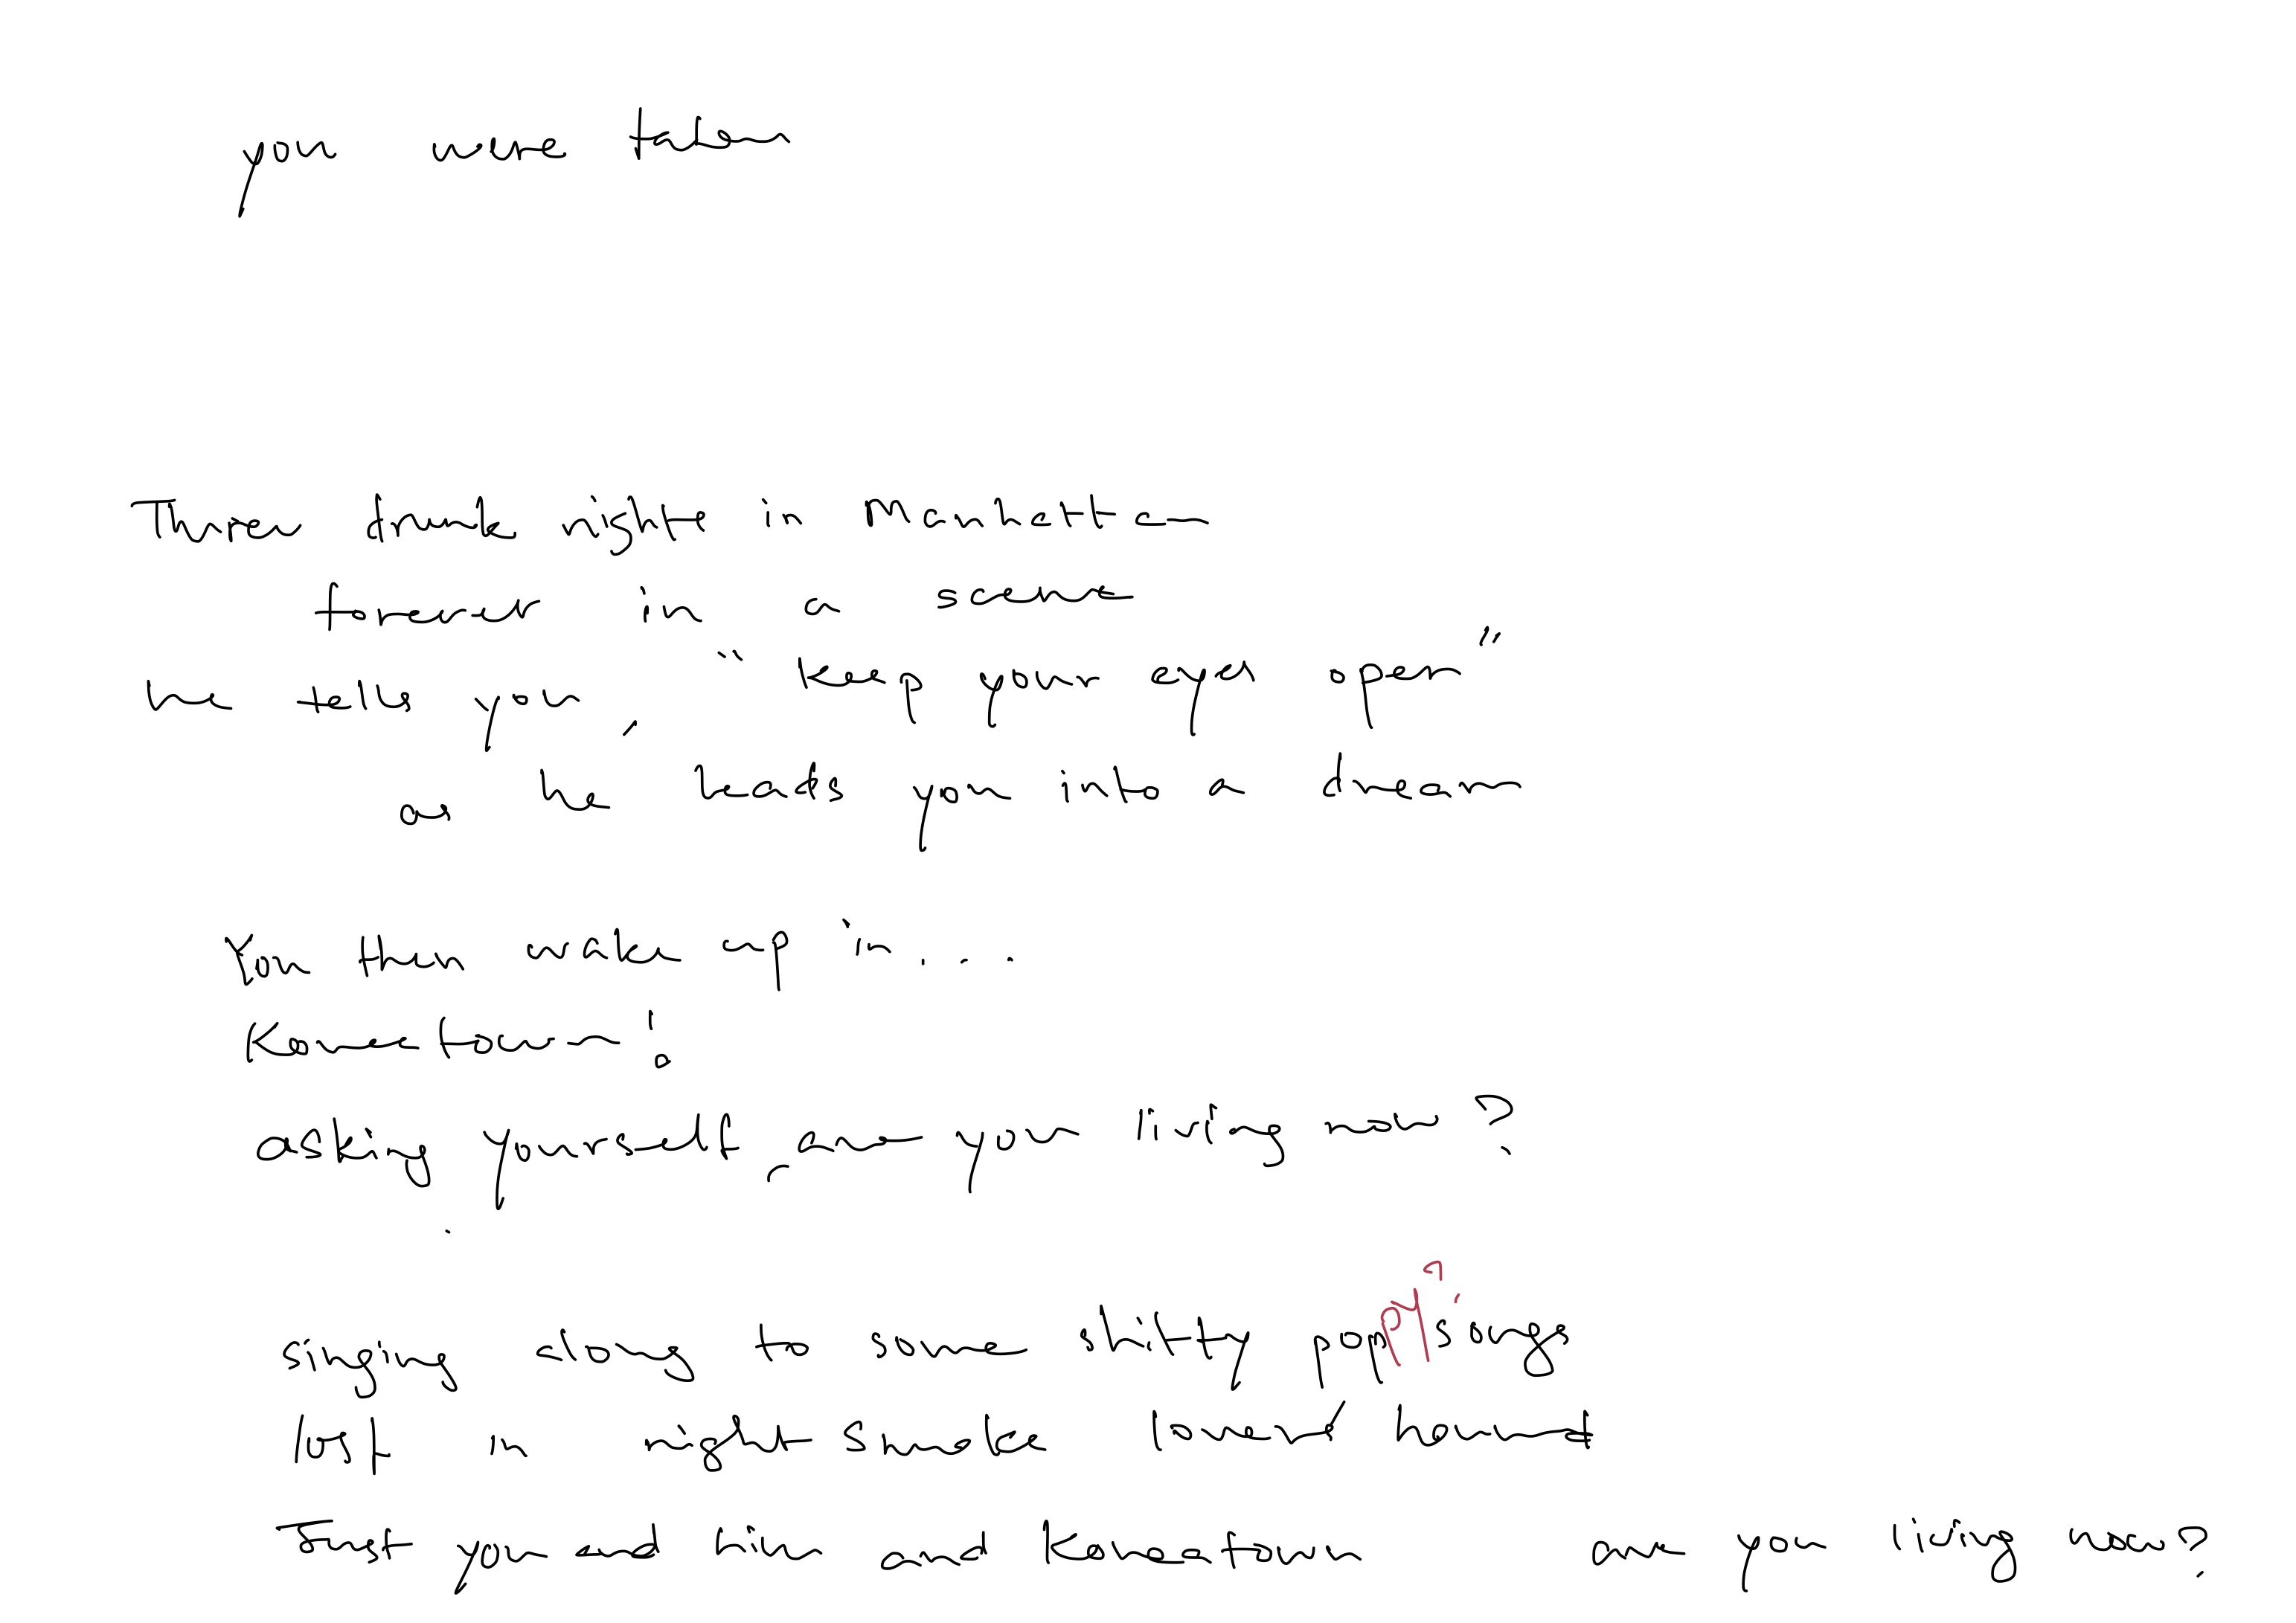 you were taken
Three drunk nights in Manhattan
forever in a second
he tells you, "keep your eyes open"
as he leads you into a dream
You then wake up in....
Koreatown!
asking yourself, are you living now?
singing along to some shitty poppy? songs
lost in night smoke forever bound
Just you and him and Koreatown are you living now?